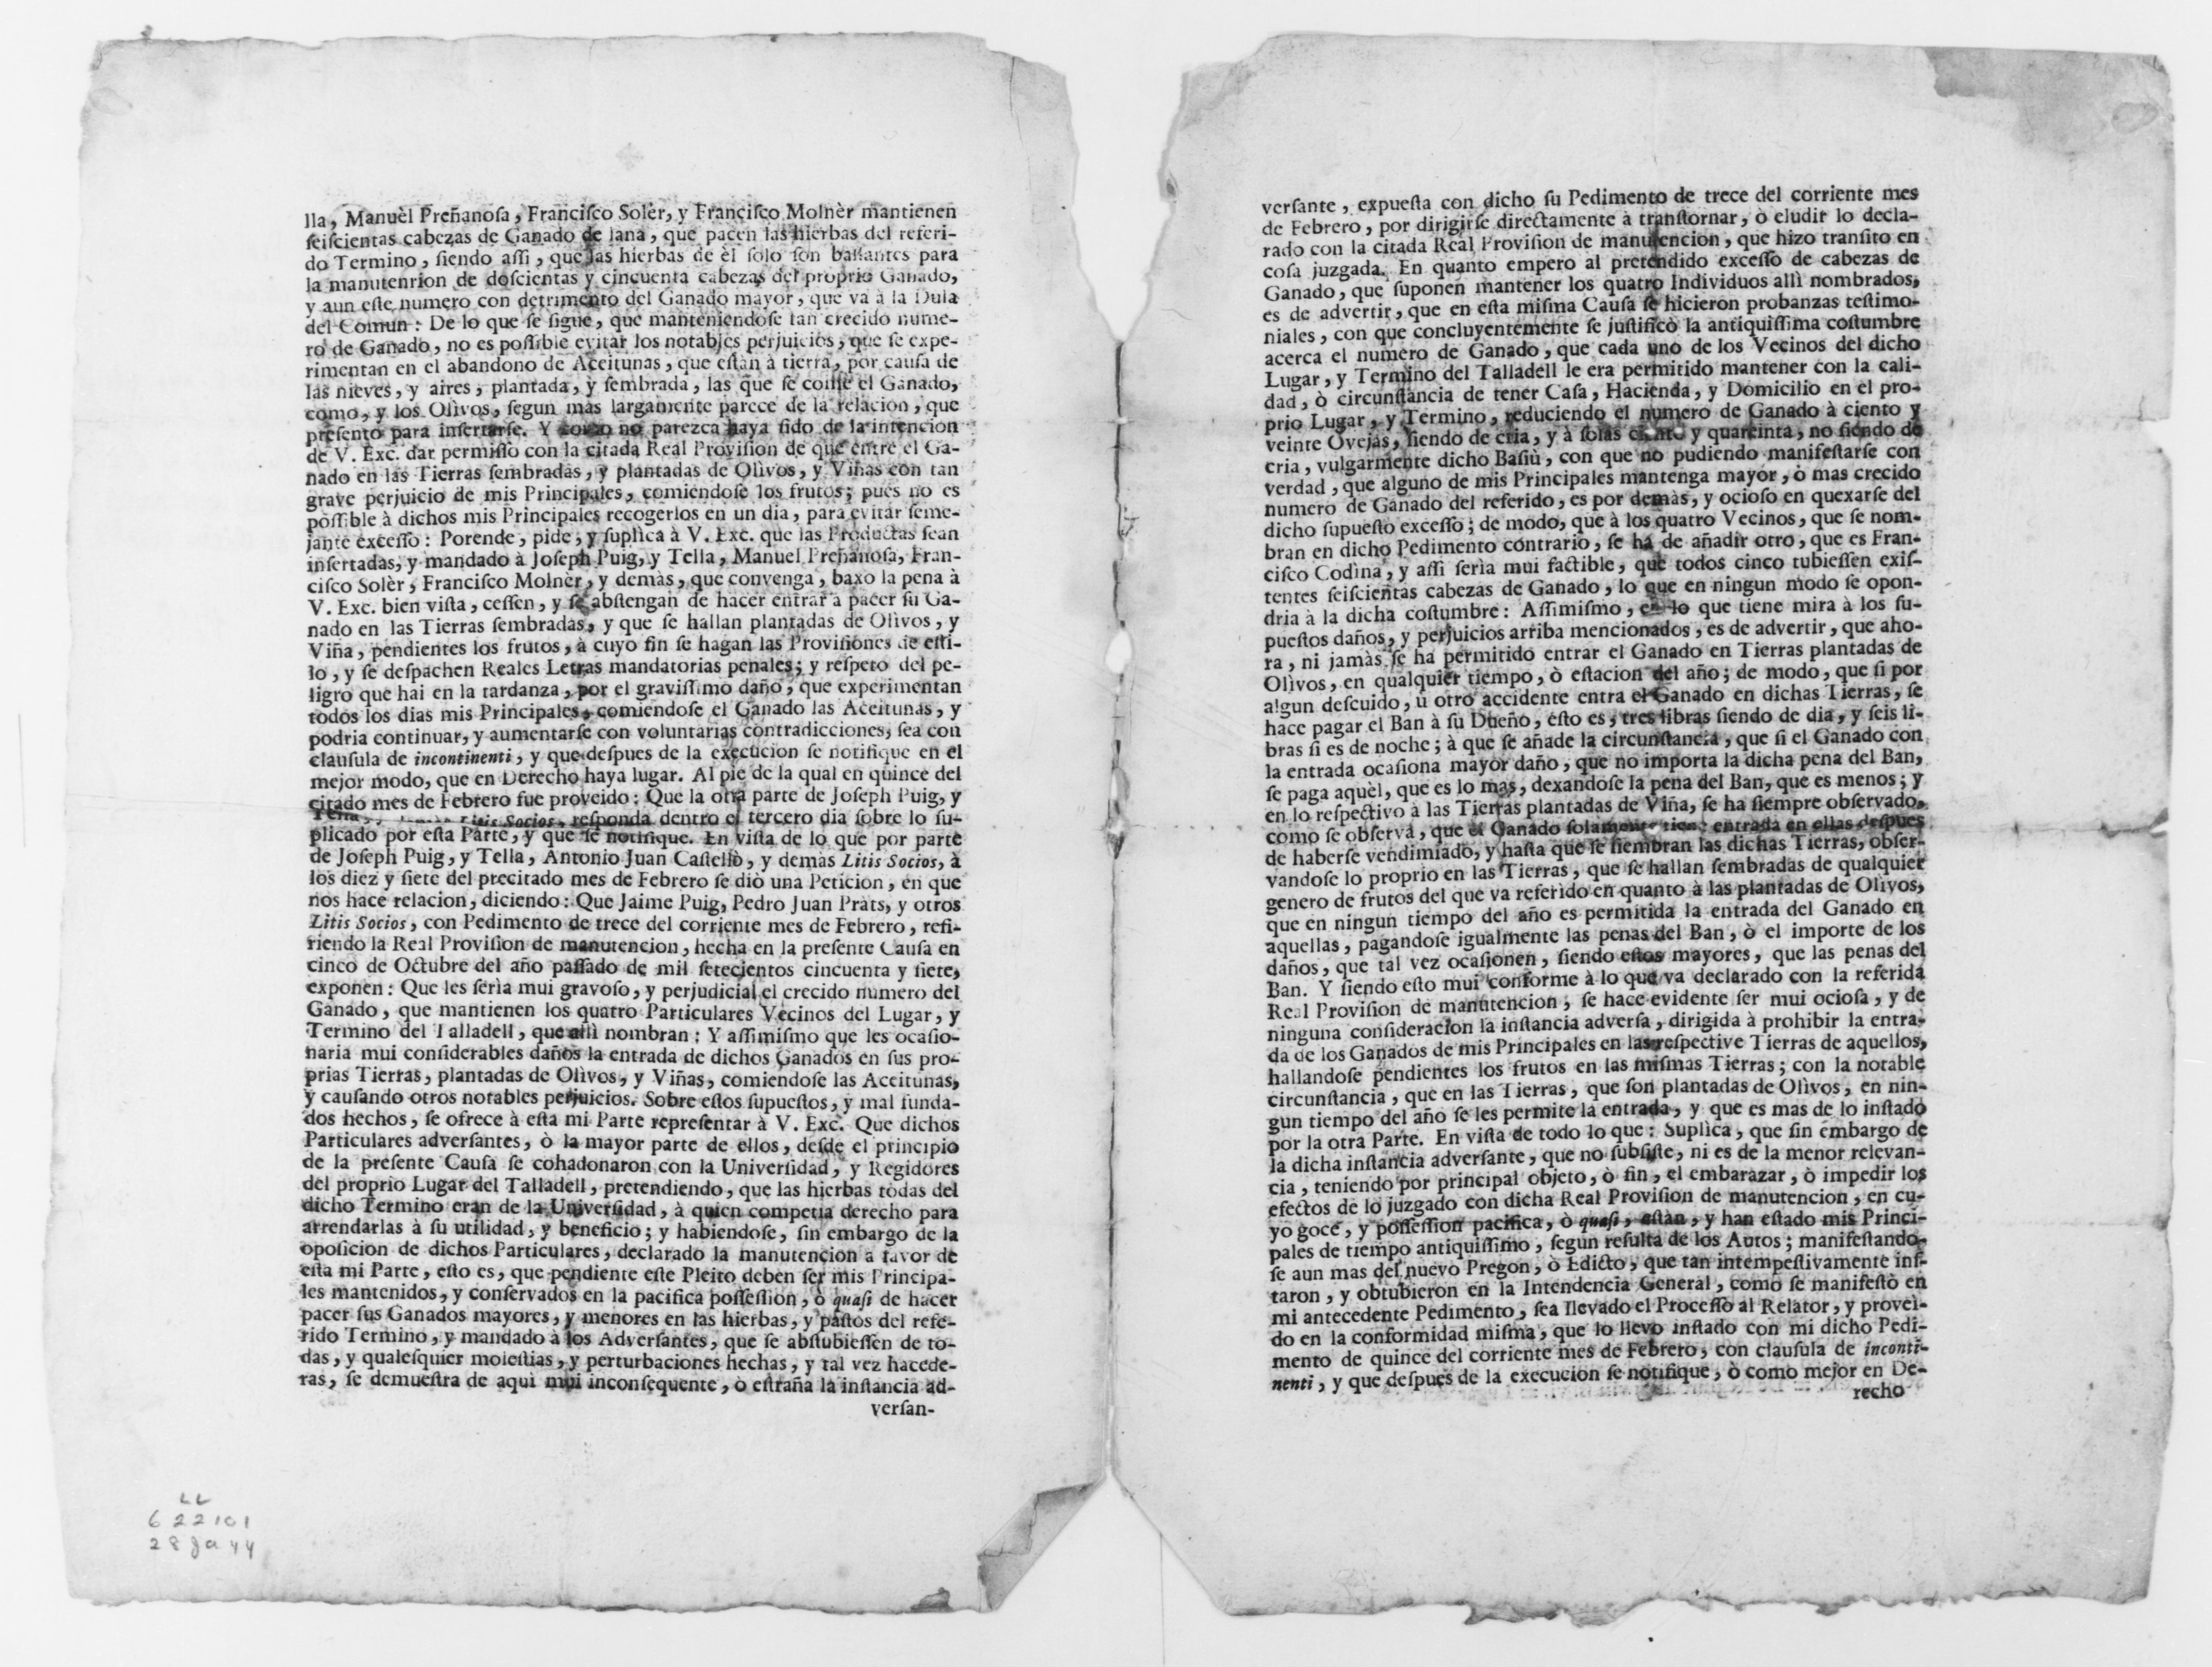 lla, Manuèl Preñanosa, Francisco Solèr, y Francisco Molnèr mantienen
seiscientas cabezas de Ganado de lana, que pacen las hierbas del referi-
do Termino, siendo assi, que las hierbas de èl solo son bastantes para
la manutenrion de doscientas y cincuenta cabezas del proprio Ganado,
y aun este numero con detrimento del Ganado mayor, que và à la Dula
del Comun: De lo que se sigue, que manteniendose tan crecido nume-
ro de Ganado, no es possible evitar los notables perjuicios, que se expe-
rimentan en el abandono de Aceitunas, que estàn à tierra, por causa de
las nieves, y aires, plantada, y sembrada, las que se come el Ganado,
como, y los Olivos, segun mas largamente parece de la relacion, que
presento para insertarse. Y como no parezca haya sido de la intencion
de V. Exc. dar permisso con la citada Real Provision de que entre el Ga-
nado en las Tierras sembradas, y plantadas de Olivos, y Viñas con tan
grave perjuicio de mis Principales, comiendose los frutos; pues no es
possible à dichos mis Principales recogerlos en un dia, para evitar seme-
jante excesso: Porende, pide, y suplica à V. Exc. que las Productas sean
insertadas, y mandado à Joseph Puig, y Tella, Manuel Preñanosa, Fran-
cisco Solèr, Francisco Molnèr, y demàs, que convenga, baxo la pena à
V. Exc. bien vista, cessen, y se abstengan de hacer entrar à pacer su Ga-
nado en las Tierras sembradas, y que se hallan plantadas de Olivos, y
Viña, pendientes los frutos, à cuyo fin se hagan las Provisiones de esti-
lo, y se despachen Reales Letras mandatorias penales; y respeto del pe-
ligro que hai en la tardanza, por el gravissimo daño, que experimentan
todos los dias mis Principales, comiendose el Ganado las Aceitunas, y
podria continuar, y aumentarse con voluntarias contradicciones, sea con
clausula de incontinenti, y que despues de la execucion se notifique en el
mejor modo, que en Derecho haya lugar. Al pie de la qual en quince del
citado mes de Febrero fue proveido: Que la otra parte de Joseph Puig, y
Tella, Litis Socios, responda dentro el tercero dia sobre lo su-
plicado por esta Parte, y que se notifique. En vista de lo que por parte
de Joseph Puig, y Tella, Antonio Juan Castellò, y demàs Litis Socios, à
los diez y siete del precitado mes de Febrero se diò una Peticion, en que
nos hace relacion, diciendo: Que Jaime Puig, Pedro Juan Pràts, y otros
Litis Socios, con Pedimento de trece del corriente mes de Febrero, refi-
riendo la Real Provision de manutencion, hecha en la presente Causa en
cinco de Octubre del año passado de mil setecientos cincuenta y siete,
exponen: Que les serìa mui gravoso, y perjudicial el crecido numero del
Ganado, que mantienen los quatro Particulares Vecinos del Lugar, y
Termino del Talladell, que allì nombran: Y assimismo que les ocasio-
naria mui considerables daños la entrada de dichos Ganados en sus pro-
prias Tierras, plantadas de Olivos, y Viñas, comiendose las Aceitunas,
y causando otros notables perjuicios. Sobre estos supuestos, y mal funda-
dos hechos, se ofrece à esta mi Parte representar à V. Exc. Que dichos
Particulares adversantes, ò la mayor parte de ellos, desde el principio
de la presente Causa se cohadonaron con la Universidad, y Regidores
del proprio Lugar del Talladell, pretendiendo, que las hierbas todas del
dicho Termino eran de la Universidad, à quien competia derecho para
arrendarlas à su utilidad, y beneficio; y habiendose, sin embargo de la
oposicion de dichos Particulares, declarado la manutencion à favor de
esta mi Parte, esto es, que pendiente este Pleito deben ser mis Principa-
les mantenidos, y conservados en la pacifica possession, ò quasi de hacer
pacer sus Ganados mayores, y menores en las hierbas, y pastos del refe-
rido Termino, y mandado à los Adversantes, que se abstubiessen de to-
das, y qualesquier molestias, y perturbaciones hechas, y tal vez hacede-
ras, se demuestra de aqui mui inconsequente, ò estraña la instancia ad-
versan-
LL
622101
28 Ja 44
versante, expuesta con dicho su Pedimento de trece del corriente mes
de Febrero, por dirigirse directamente à transtornar, ò eludir lo decla-
rado con la citada Real Provision de manutencion, que hizo transito en
cosa juzgada. En quanto empero al pretendido excesso de cabezas de
Ganado, que suponen mantener los quatro Individuos allì nombrados,
es de advertir, que en esta misma Causa se hicieron probanzas testimo-
niales, con que concluyentemente se justificò la antiquissima costumbre
acerca el numero de Ganado, que cada uno de los Vecinos del dicho
Lugar, y Termino del Talladell le era permitido mantener con la cali-
dad, ò circunstancia de tener Casa, Hacienda, y Domicilio en el pro-
prio Lugar, y Termino, reduciendo el numero de Ganado à ciento y
veinte Ovejas, siendo de cria, y à solas ciento y quareinta, no siendo de
cria, vulgarmente dicho Basiù, con que no pudiendo manifestarse con
verdad, que alguno de mis Principales mantenga mayor, ò mas crecido
numero de Ganado del referido, es por demàs, y ocioso en quexarse del
dicho supuesto excesso; de modo, que à los quatro Vecinos, que se nom-
bran en dicho Pedimento contrario, se ha de añadir otro, que es Fran-
cisco Codìna, y assi serìa mui factible, que todos cinco tubiessen exis-
tentes seiscientas cabezas de Ganado, lo que en ningun modo se opon-
dria à la dicha costumbre: Assimismo, en lo que tiene mira à los su-
puestos daños, y perjuicios arriba mencionados, es de advertir, que aho-
ra, ni jamàs se ha permitido entrar el Ganado en Tierras plantadas de
Olìvos, en qualquier tiempo, ò estacion del año; de modo, que si por
algun descuido, ù otro accidente entra el Ganado en dichas Tierras, se
hace pagar el Ban à su Dueño, esto es, tres libras siendo de dia, y seis li-
bras si es de noche; à que se añade la circunstancia, que si el Ganado con
la entrada ocasiona mayor daño, que no importa la dicha pena del Ban,
se paga aquèl, que es lo mas, dexandose la pena del Ban, que es menos; y
en lo respectivo à las Tierras plantadas de Viña, se ha siempre observado,
como se observa, que el Ganado solamente tiene entrada en ellas despues
de haberse vendimiado, y hasta que se siembran las dichas Tierras, obser-
vandose lo proprio en las Tierras, que se hallan sembradas de qualquier
genero de frutos del que va referido en quanto à las plantadas de Olivos,
que en ningun tiempo del año es permitida la entrada del Ganado en
aquellas, pagandose igualmente las penas del Ban, ò el importe de los
daños, que tal vez ocasionen, siendo estos mayores, que las penas del
Ban. Y siendo esto mui conforme à lo que va declarado con la referida
Real Provision de manutencion; se hace evidente ser mui ociosa, y de
ninguna consideracion la instancia adversa, dirigida à prohibir la entra-
da de los Ganados de mis Principales en las respective Tierras de aquellos,
hallandose pendientes los frutos en las mismas Tierras; con la notable
circunstancia, que en las Tierras, que son plantadas de Olivos, en nin-
gun tiempo del año se les permite la entrada, y que es mas de lo instado
por la otra Parte. En vista de todo lo que: Suplica, que sin embargo de
la dicha instancia adversante, que no subsiste, ni es de la menor relevan-
cia, teniendo por principal objeto, ò fin, el embarazar, ò impedir los
efectos de lo juzgado con dicha Real Provision de manutencion, en cu-
yo goce, y possession pacifica, ò quasi, estàn, y han estado mis Princi-
pales de tiempo antiquissimo, segun resulta de los Autos; manifestando-
se aun mas del nuevo Pregon, ò Edicto, que tan intempestivamente ins-
taron, y obtubieron en la Intendencia General, como se manifestò en
mi antecedente Pedimento, sea llevado el Processo al Relator, y provei-
do en la conformidad misma, que lo llevo instado con mi dicho Pedi-
mento de quince del corriente mes de Febrero, con clausula de inconti-
nenti, y que despues de la execucion se notifique, ò como mejor en De-
recho